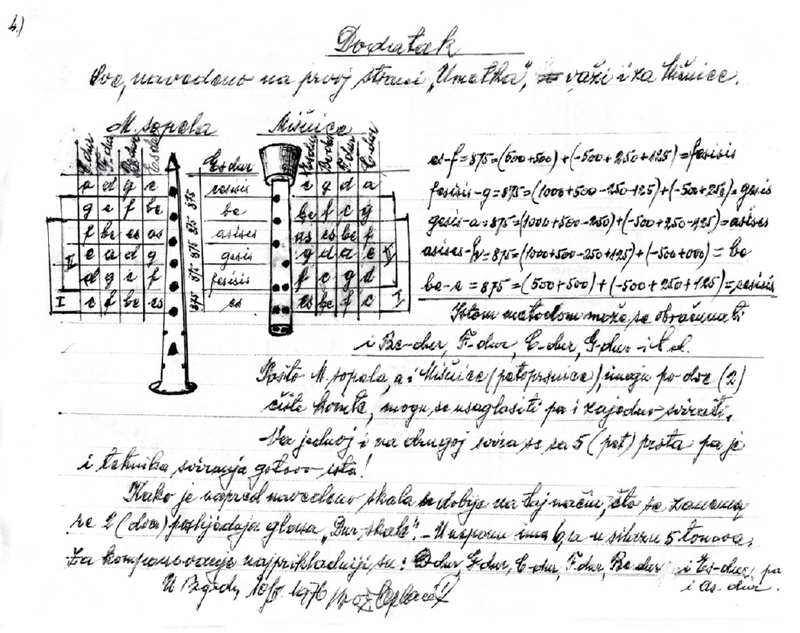 4.)
Dodatak
Sve, navedeno na prvoj strani „Umetka”, važi i za Mišnice.
M. sopela
Mišnice
C dur F dur B dur Es dur
Es dur
Es dur B dur F dur C dur
a d g c
cesisis
c g d a
g c f be
be
be f c g
f be es as
asises
as es be f
e a d g
gesis
g d a e
d g c f
fesisis
f c g d
c f be es
es
es be f c
875 875 875 875 875
I II
II I
es-f = 875 = (500+500) + (-500+250+125) = fesisis
fesisis-g = 875 = (1000+500-250-125) + (-500+250) = gesis
gesis-a = 875 = (1000+500-250) + (-500+250-125) = asises
asises-h = 875 = (1000+500-250+125) + (-500+000) = be
be-c = 875 = (500+500) + (-500+250+125) = cesisis
Istom metodom može se obračunati
i Be-dur, F-dur, C-dur, G-dur i t.d.
Pošto M. sopela, a i Mišnice (petoprsnice), imaju po dve (2)
čiste kvinte, mogu se usaglasiti pa i zajedno svirati.
Na jednoj i na drugoj svira se sa 5 (pet) prsta pa je
i tehnika sviranja gotovo ista!
Kako je napred navedeno skala se dobije na taj način, što se zanemare
2 (dva) posljednja glasa „Dur skale”. - U usponu ima 6, a u silazu 5 tonova.
Za komponovanje najprikladniji su: D dur, G-dur, C-dur, F-dur, Be-dur i Es-dur, pa
i As-dur.
U Bgodu, 1976